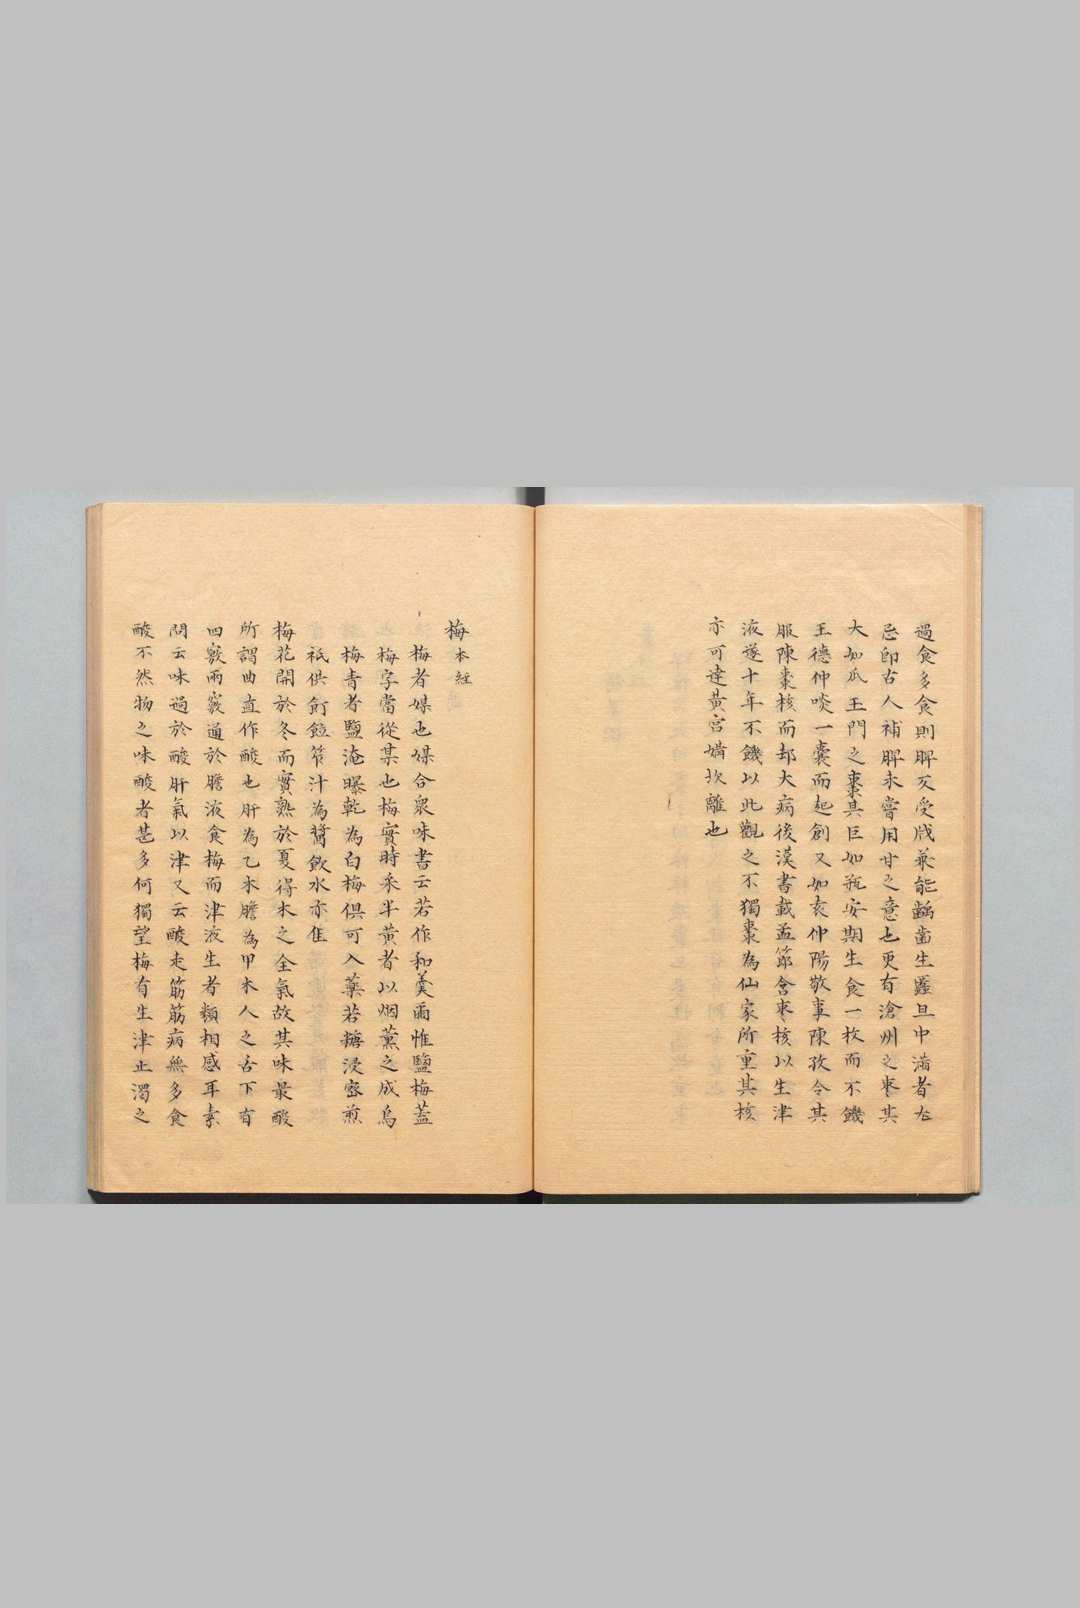 過食多食則脾反受戕兼能齲齒生䘌且中滿者尤
忌即古人補脾未嘗用甘之意也更有滄州之棗其
大如瓜玉門之棗其巨如瓶安期生食一枚而不饑
王德仲啖一囊而起創又如亥仲陽敬事陳孜令其
服陳棗核而却大病後漢書載孟節含棗核以生津
液遂十年不饑以此觀之不獨棗為仙家所重其核
亦可達黃宮媾坎離也
梅本經
梅者媒也媒合眾味書云若作和羹爾惟鹽梅蓋
梅字當從某也梅實時采半黃者以烟薰之成烏
梅青者鹽淹曝乾為白梅俱可入藥若糖浸密煎
祇供飣餖笮汁為醬飲水亦佳
梅花開於冬而實熟於夏得木之全氣故其味最酸
所謂曲直作酸也肝為乙木膽為甲木人之舌下有
四竅兩竅通於膽液食梅而津液生者類相感耳素
問云味過於酸肝氣以津又云酸走筋筋病無多食
酸不然物之味酸者甚多何獨望梅有生津止渴之